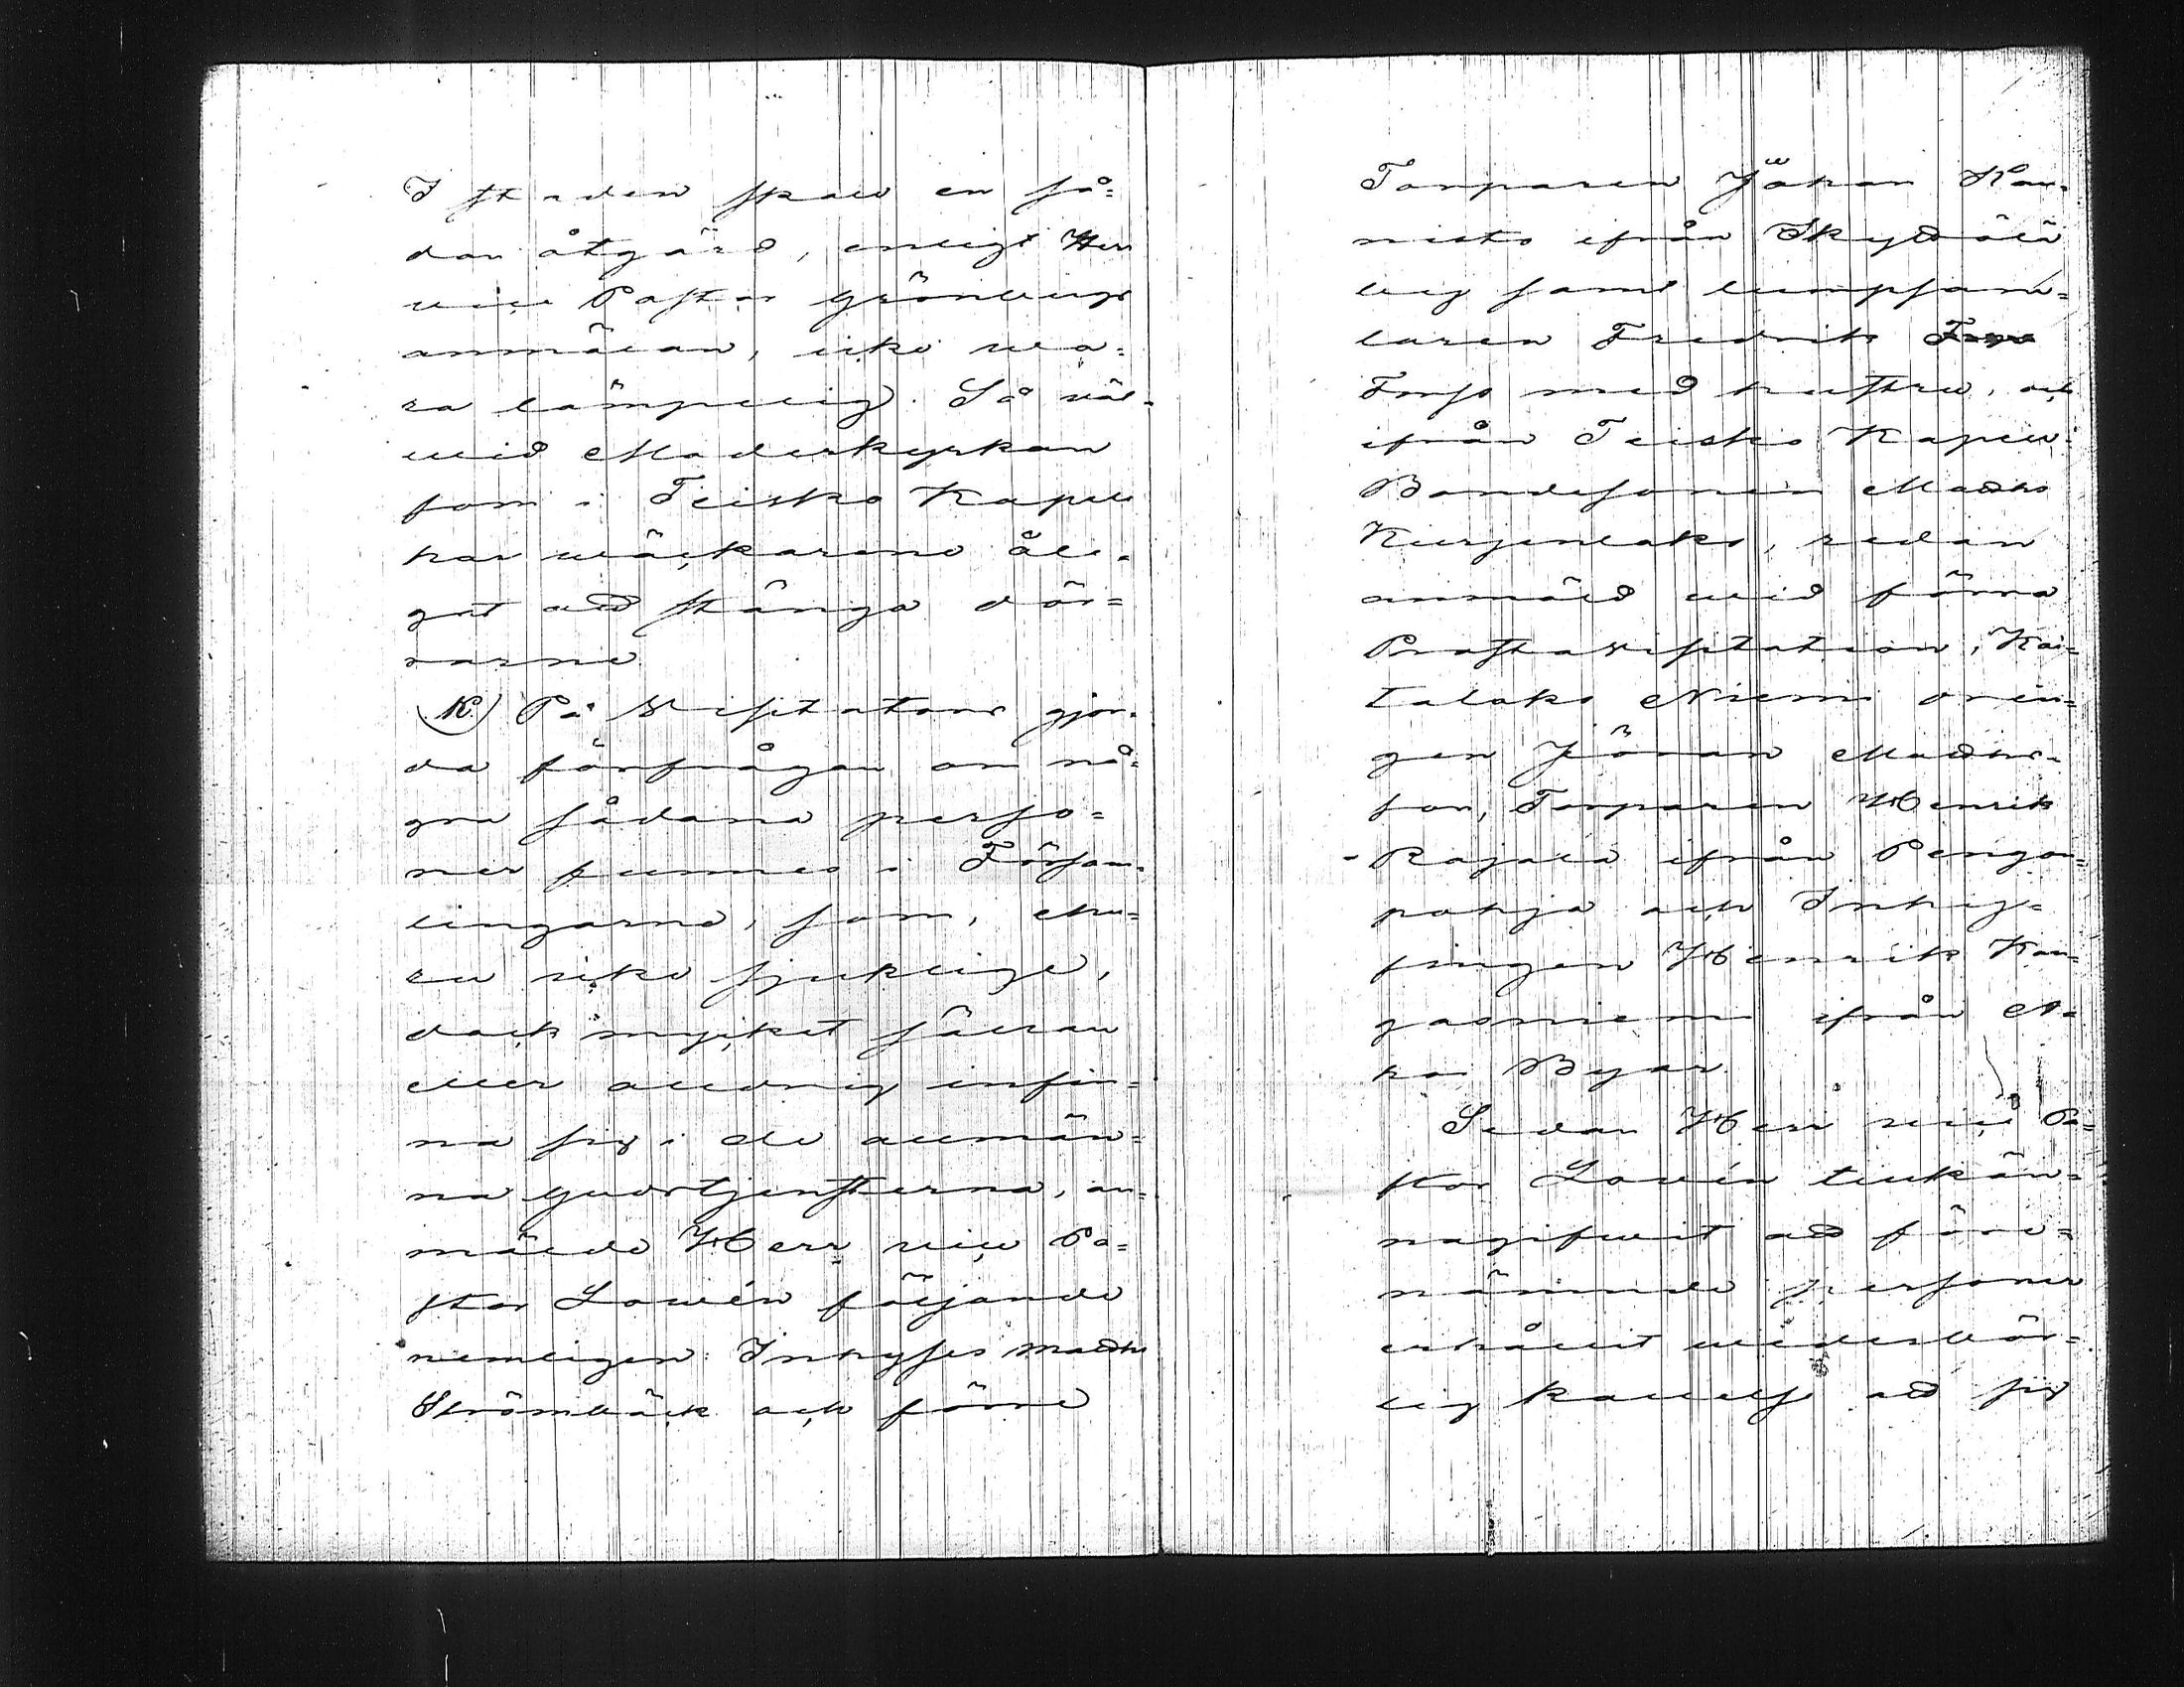 I staden skall en så=
dan åtgärd, enligt Herr
vice Pastor Grönbergs
anmälan, icke wa=
ra lämpelig. Så väl
wid Moderkyrkan
som i Teisko Kapell
har wäckarene åle=
gat att stänga dör=
rarne
K) På Visitators gjor=
da förfrågan om nå=
gra sådana perso=
ner funnes i Försam=
lingarne, som, ehu=
ru icke sjuklige,
dock mycket sällan
eller aldrig infin=
na sig i de allmän=
na gudstjensterna, an=
mälde Herr vice Pa=
stor Lowén följande
nemligen: Inhyses Matts
Strömbäck och förre
Torparen Johan Kan=
nisto ifrån Skyttälä
by samt lumpsam=
laren Fredrik
Fross med hustru, och
ifrån Teisko Kapell:
Bondesonen Matts
Kurjenlaks, redan
anmäld wid förra
Prostavisitation, Kai=
talaks Niemi dren=
gen Johan Matts=
son, Torparen Henrik
Rajala ifrån Pengon=
pohja och Inhy=
singen Henrik Kan=
gasniemi ifrån
Byar.
Sedan Herr vice Pa=
stor Lowén tillkän=
nagifwit att före=
nämnde personer
erhållit wederbör=
lig kallelse att sig